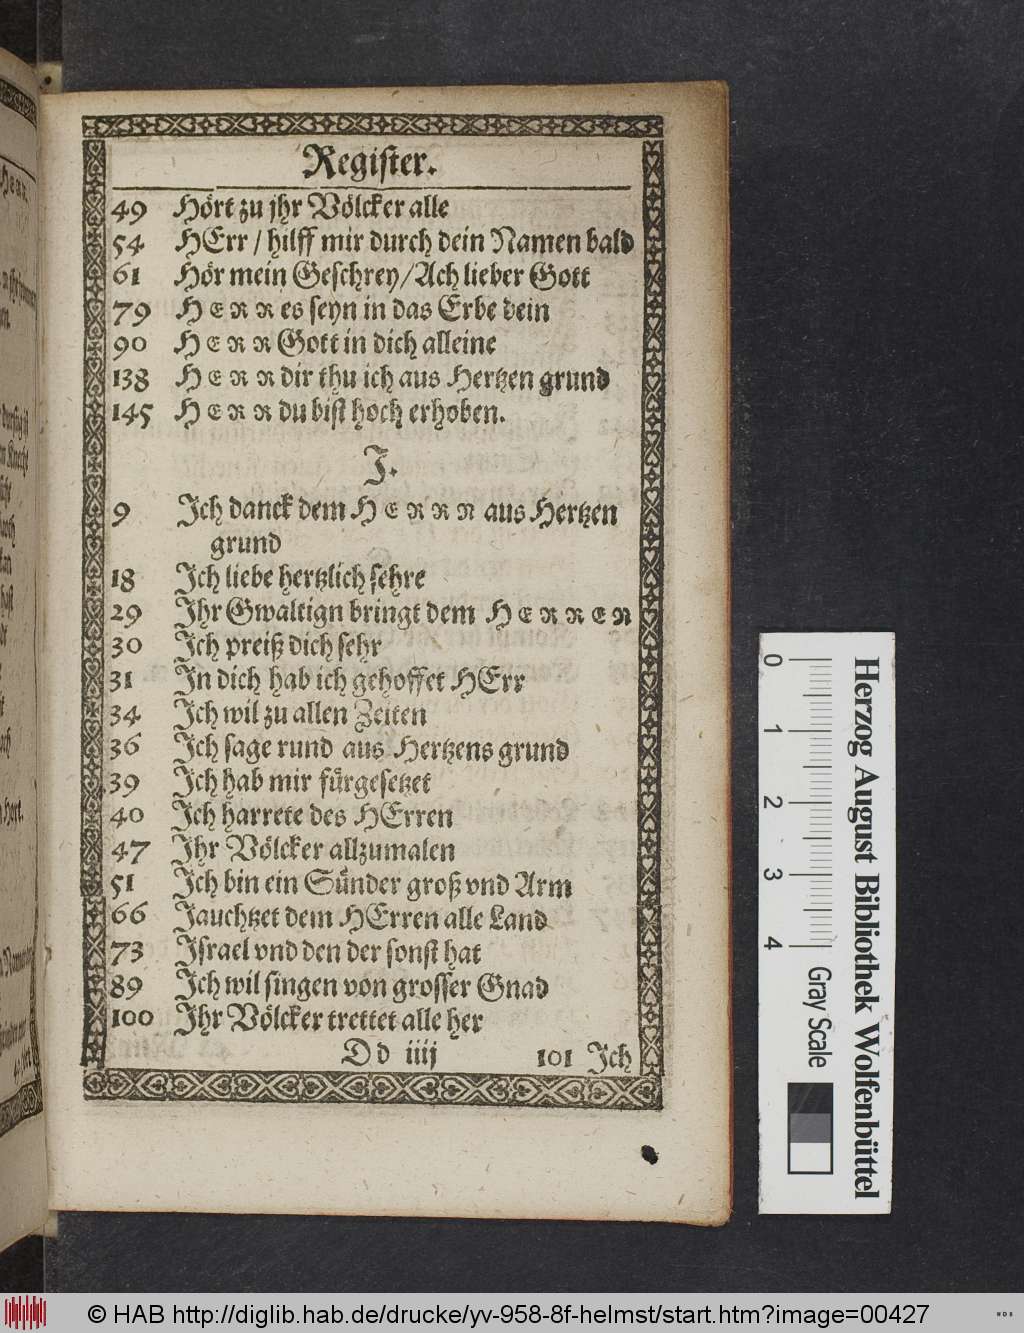 Register.
49 Hört zu jhr Völcker alle
54 HErr / hilff mir durch dein Namen bald
61 Hör mein Geschrey / Ach lieber Gott
79 HERR es seyn in das Erbe dein
90 HERR Gott in dich alleine
138 HERR dir thu ich aus Hertzen grund
145 HERR du bist hoch erhoben.
J.
9 Jch danck dem HERRN aus Hertzen
grund
18 Jch liebe hertzlich sehre
29 Jhr Gwaltign bringt dem HERREN
30 Jch preiß dich sehr
31 Jn dich hab ich gehoffet HErr
34 Jch wil zu allen Zeiten
36 Jch sage rund aus Hertzens grund
39 Jch hab mir fürgesetzet
40 Jch harrete des HErren
47 Jhr Völcker allzumalen
51 Jch bin ein Sünder groß vnd Arm
66 Jauchtzet dem HErren alle Land
73 Jsrael vnd den der sonst hat
89 Jch wil singen von grosser Gnad
100 Jhr Völcker trettet alle her
Dd iiij 101 Jch
0 1 2 3 4 Gray Scale
Herzog August Bibliothek Wolfenbüttel
© HAB http://diglib.hab.de/drucke/yv-958-8f-helmst/start.htm?image=00427